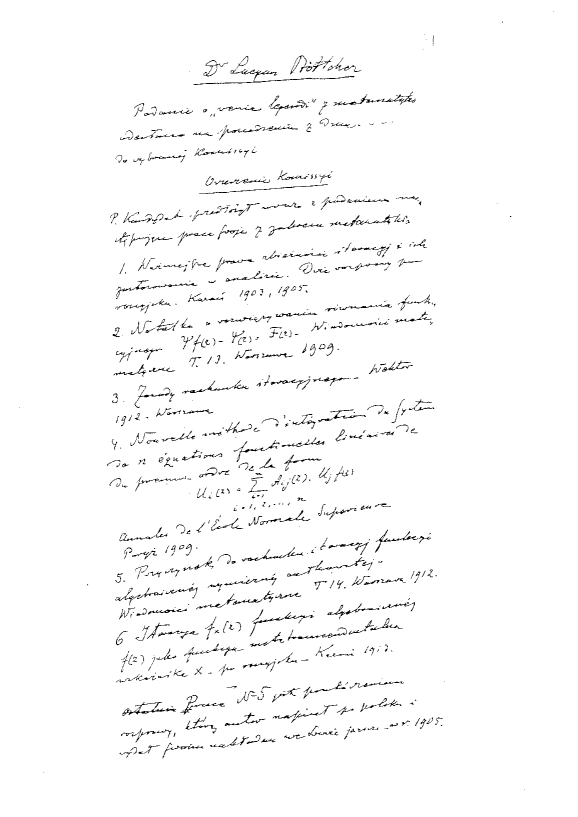 1
Dr Lucyan Böttcher
Podanie o „venia legendi" z matematyki
odesłano na posiedzeniu z dnia . . .
do wybranej Komissyi
Orzeczenie Komissyi
P. Kandydat przedłożył wraz z podaniem na-
stępujące prace swoje z zakresu matematyki.
1. Ważniejsze prawa zbieżności iteracyj i ich
zastosowanie w analizie. Dwie rozprawy po
rosyjsku. Kazań 1903, 1905.
2. Notatka o rozwiązywaniu równania funk-
cyjnego Ψf(z) - Ψ(z) = F(z). Wiadomości mate-
matyczne T. 13. Warszawa 1909.
3. Zasady rachunku iteracyjnego. Wektor
1912. Warszawa
4. Nouvelle méthode d'intégration du système
de n équations fonctionelles linéaires de
du premier ordre de la forme
Ui(z) = Σ Aij(z). Uj f(z)
i = 1, 2, ..., n
Annales de l'École Normale Supérieure
Paryż 1909.
5. Przyczynek do rachunku iteracyj funkcyi
algebraicznej wymiernej całkowitej.
Wiadomości matematyczne T 14. Warszawa 1912.
6 Iteracja fx(z) funkcyi algebraicznej
f(z) jako funkcja metatranscendentalna
wskaźnika X - po rosyjsku - Kazań
Praca No 5 jest powtórzeniem
rozprawy, którą autor napisał po polsku i
wydał swoim nakładem we Lwowie jeszcze w r. 1905.